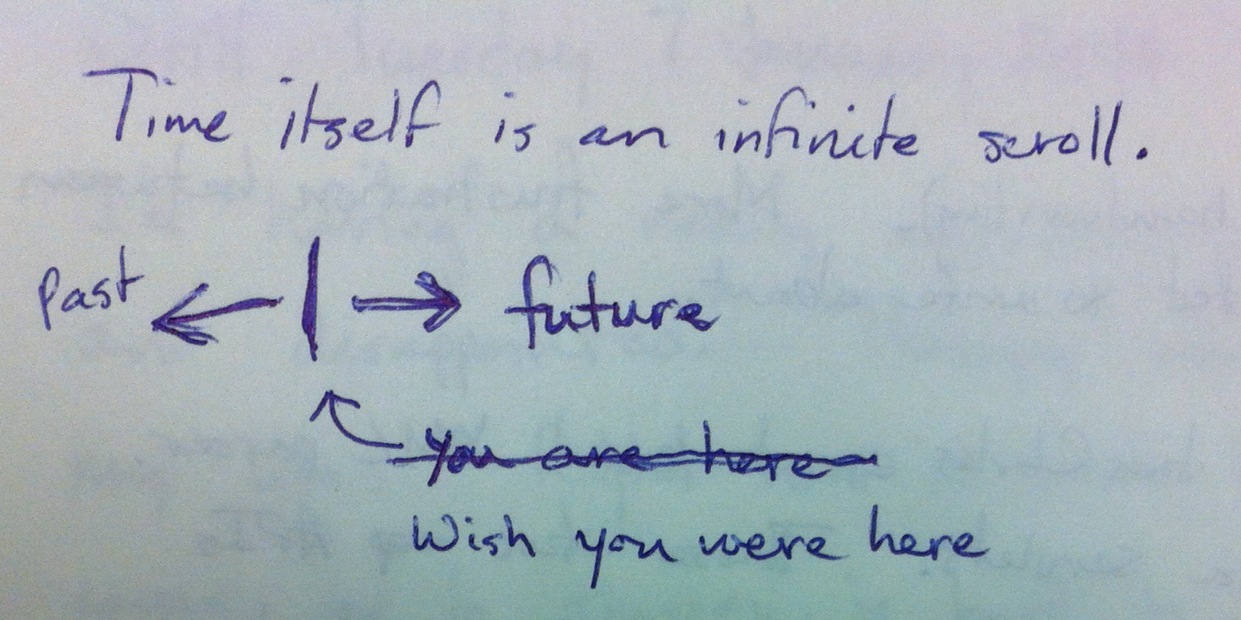 Time itself is an infinite scroll.
past ← | → future
you are here
Wish you were here